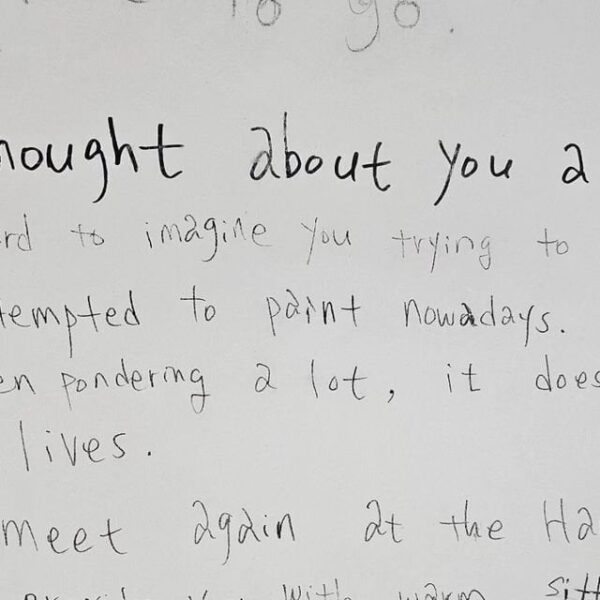 to go.
hought about you a
rd to imagine you trying to
tempted to paint nowadays.
en pondering a lot, it does
lives.
meet again at the Ha
with warm sitt